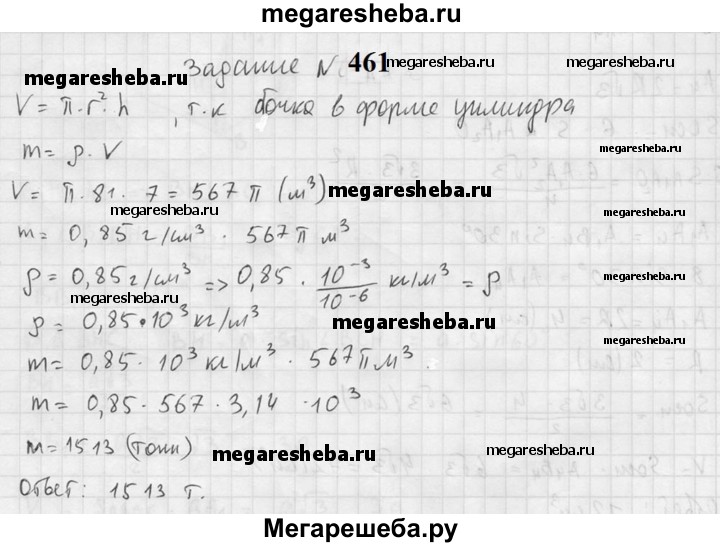 megaresheba.ru
Задание № 461 megaresheba.ru megaresheba.ru
megaresheba.ru
V = π · r² · h , т.к бочка в форме цилиндра
m = ρ · V megaresheba.ru
V = π · 81 · 7 = 567 π (м³) megaresheba.ru
megaresheba.ru
m = 0,85 г/см³ · 567 π м³
ρ = 0,85 г/см³ => 0,85 · 10⁻³/10⁻⁶ кг/м³ = ρ megaresheba.ru
megaresheba.ru
ρ = 0,85 · 10³ кг/м³ megaresheba.ru
m = 0,85 · 10³ кг/м³ · 567 π м³ megaresheba.ru
m = 0,85 · 567 · 3,14 · 10³
m = 1513 (тонн) megaresheba.ru megaresheba.ru
Ответ: 1513 т.
Мегарешеба.ру